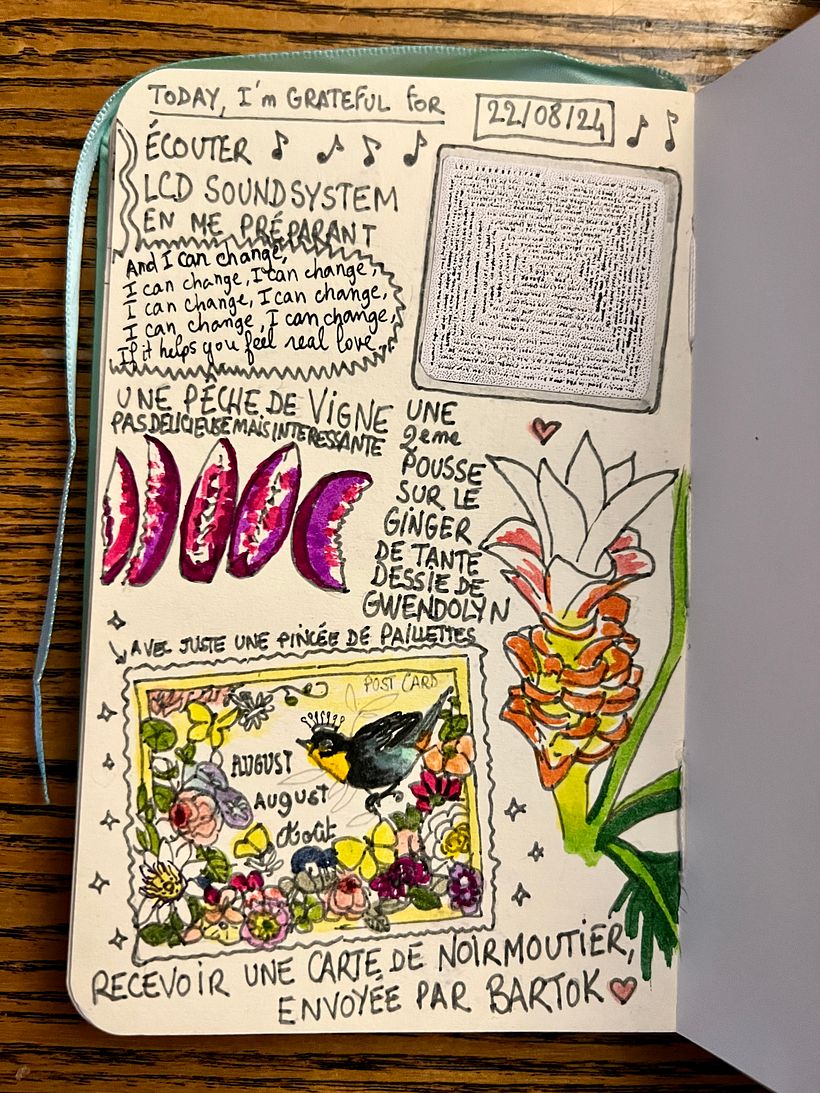 TODAY, I'm GRATEFUL FOR
22/08/24
ÉCOUTER
LCD SOUNDSYSTEM
EN ME PRÉPARANT
And I can change,
I can change, I can change,
I can change, I can change,
I can change, I can change,
If it helps you feel real love
UNE PÊCHE DE VIGNE
PAS DELICIEUSE MAIS INTERESSANTE
UNE
2eme
POUSSE
SUR LE
GINGER
DE TANTE
DESSIE DE
GWENDOLYN
AVEC JUSTE UNE PINCÉE DE PAILLETTES
POST CARD
AUGUST
AUGUST
Août
RECEVOIR UNE CARTE DE NOIRMOUTIER,
ENVOYÉE PAR BARTOK